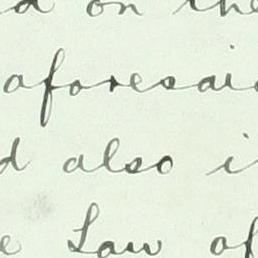 d on the
aforesaid
d also i
e Law of